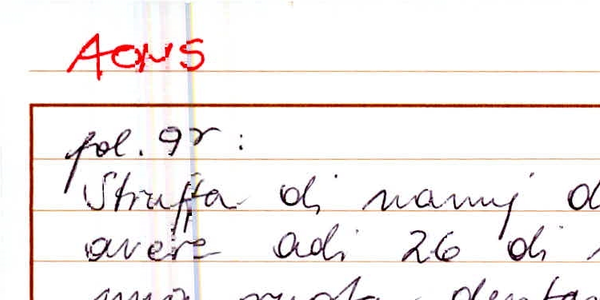 AONS
fol. 9r:
Struffa di nannj d
avere adi 26 di